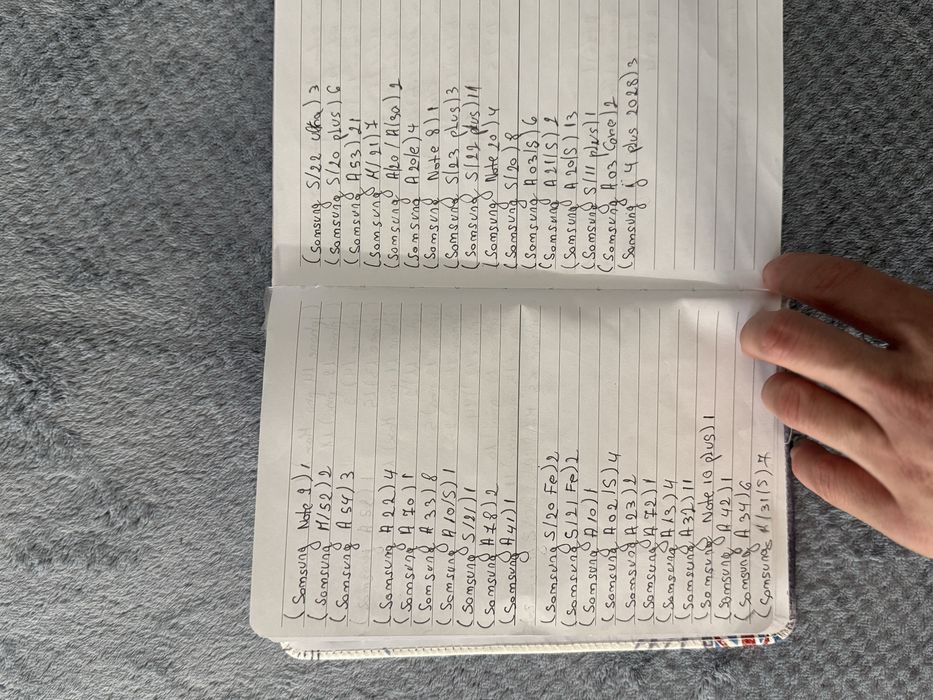 (Samsung Note 2) 1
(Samsung M/52) 2
(Samsung A 54) 3
(Samsung A 22) 4
(Samsung A 70) 1
(Samsung A 33) 8
(Samsung A 10/S) 1
(Samsung S/21) 1
(Samsung A 78) 2
(Samsung A 41) 1
(Samsung S/20 Fe) 2
(Samsung S/21 Fe) 2
(Samsung A 10) 1
(Samsung A 02/S) 4
(Samsung A 23) 2
(Samsung A 72) 1
(Samsung A 13) 4
(Samsung A 32) 11
(Samsung Note 10 plus) 1
(Samsung A 42) 1
(Samsung A 34) 6
(Samsung M/31(S) 7
(Samsung S/22 ultra) 3
(Samsung S/20 plus) 6
(Samsung A 53) 21
(Samsung M/21) 7
(Samsung A/20 / A/30) 2
(Samsung A 20(e) 4
(Samsung Note 8) 1
(Samsung S/23 plus) 3
(Samsung S/22 plus) 11
(Samsung Note 20) 4
(Samsung S/20) 8
(Samsung A 03/S) 6
(Samsung A 21(S) 2
(Samsung A 20(S) 13
(Samsung S/11 plus) 1
(Samsung A 03 Core) 2
(Samsung j 4 plus 2028) 3